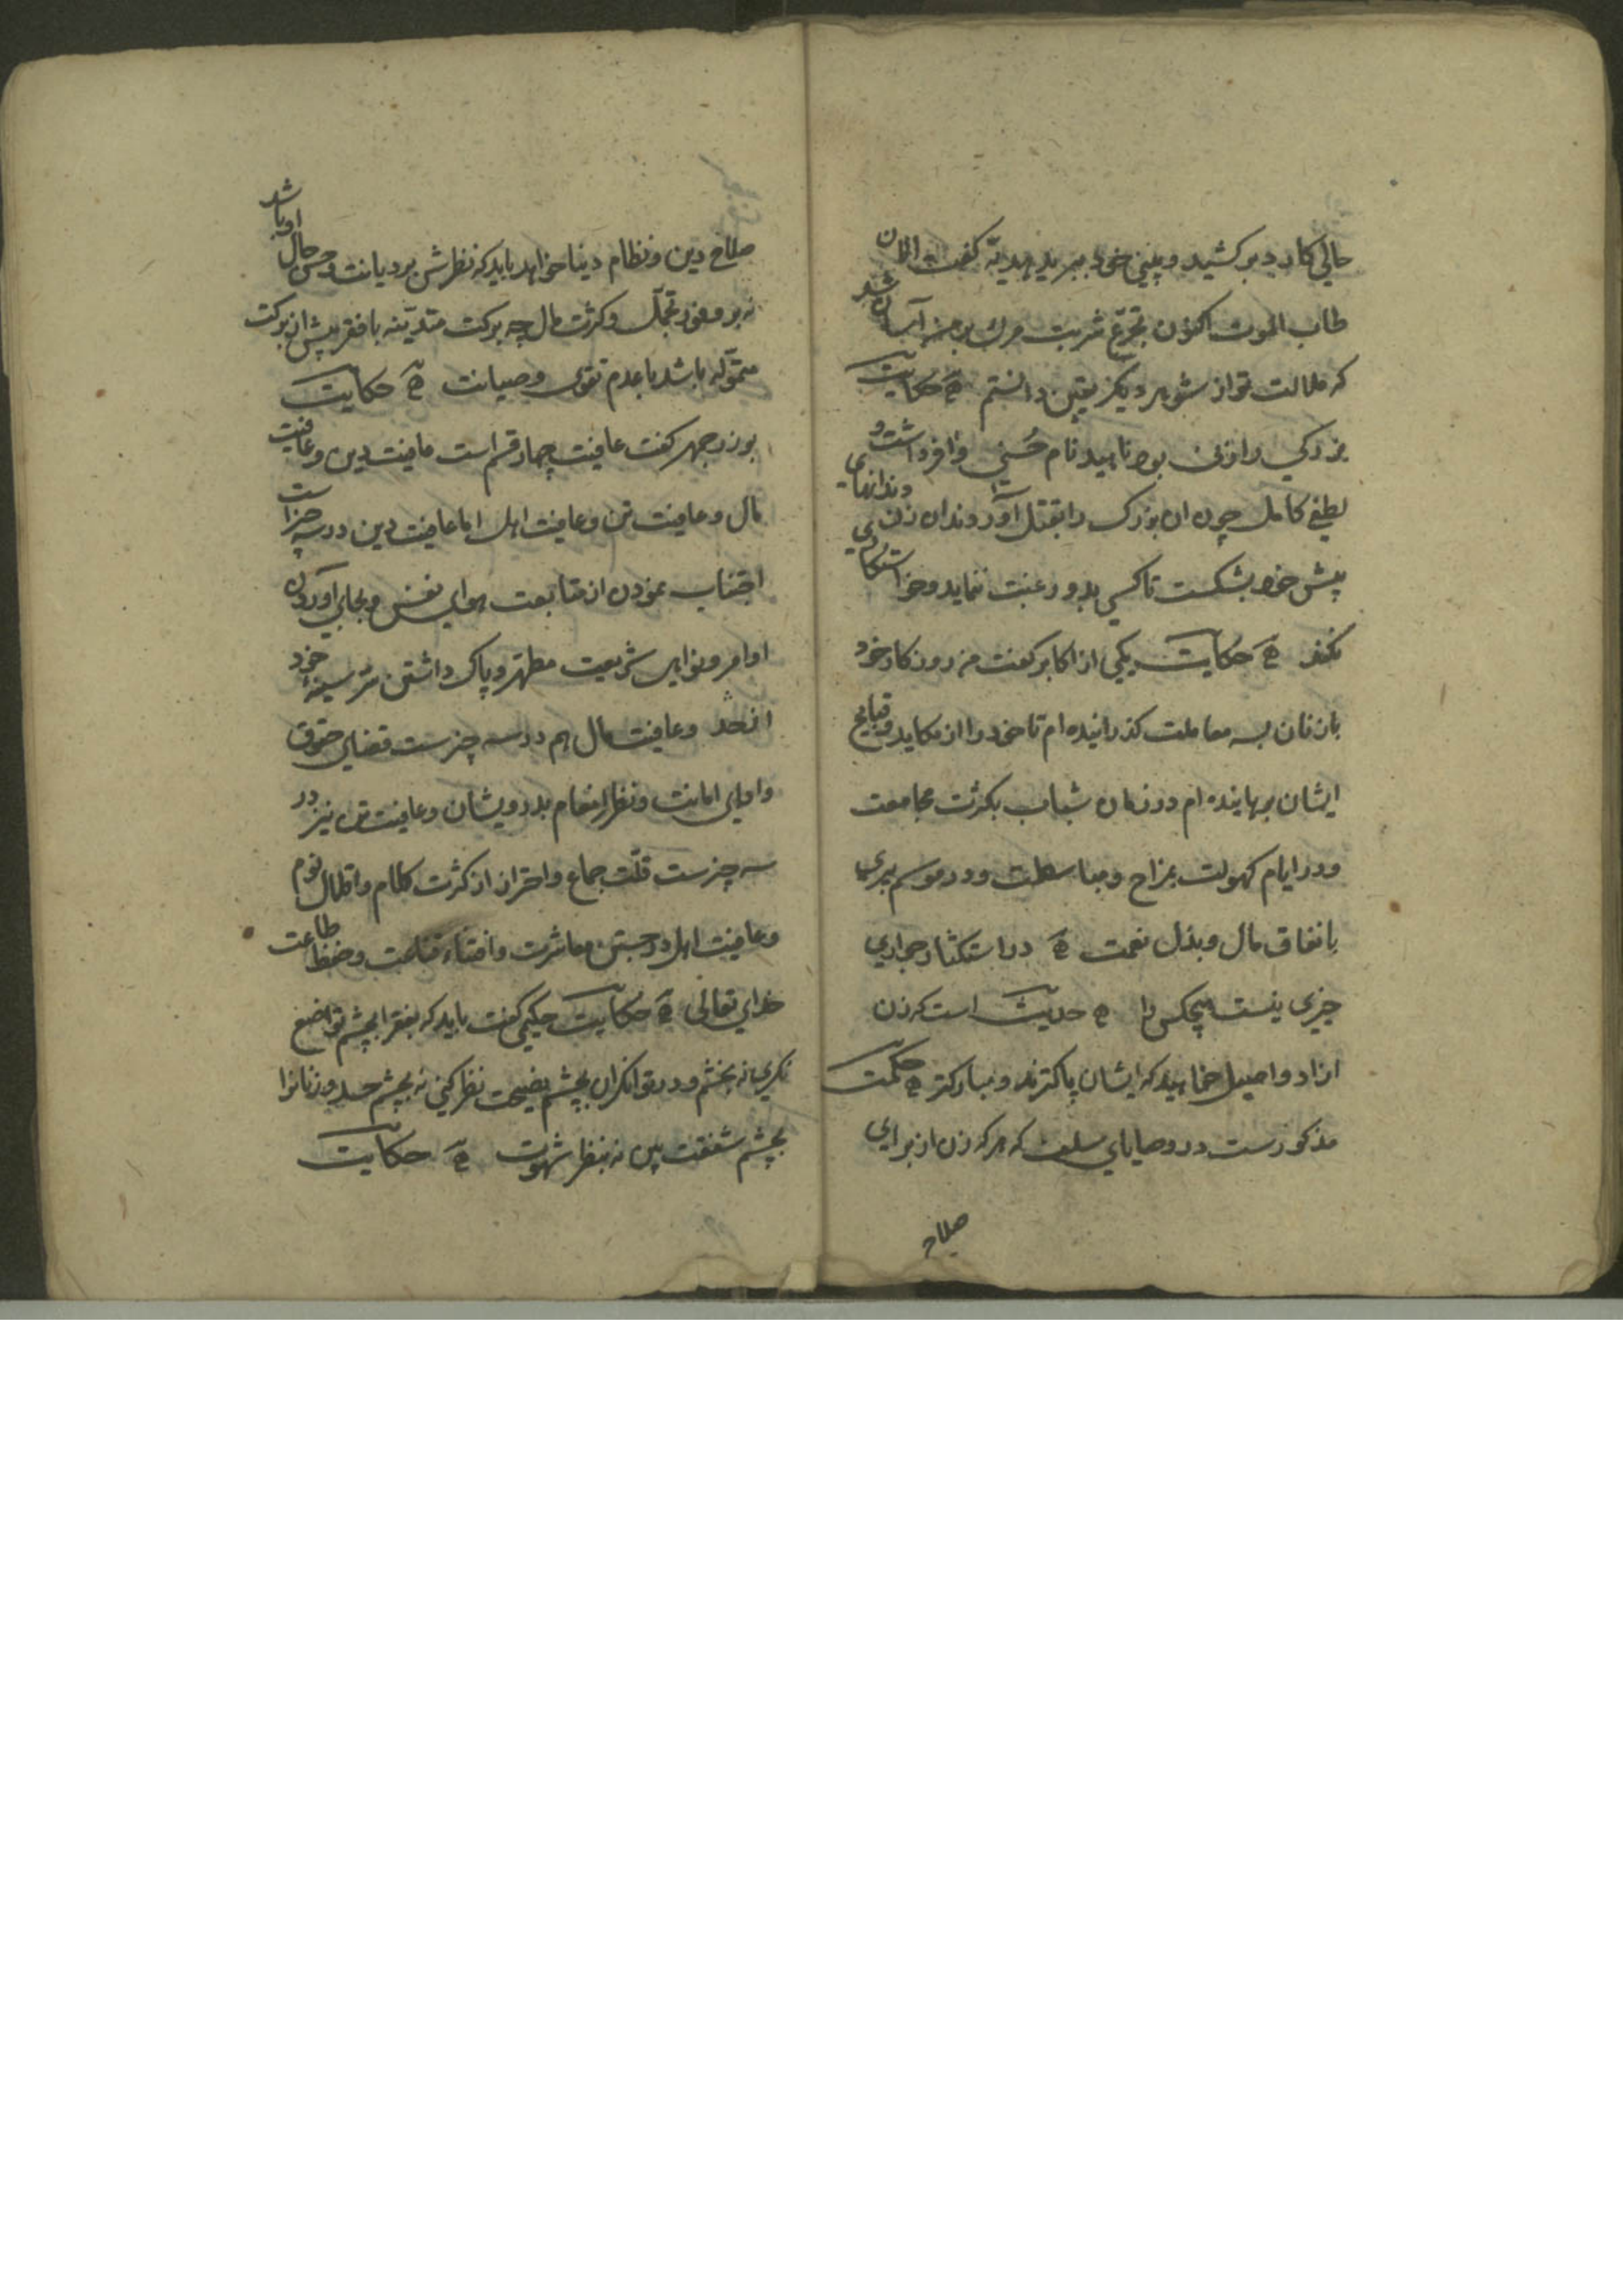 حالی کارد برکشید و بینی خود ببرید هدبه گفت الان
طاب الموت اکنون تجرع شربت مرک بر من آسان شد
که ملالت تو از شوهر دیکر یقین دانستم حکایت
بزرکی را زنی بود ناهید نام حسنی وافر داشت و
لطفی کامل چون ان بزرک را بقتل آوردند ان زن دندانهای
پیش خود بشکست تا کسی بدو رغبت ننماید و خواستکاری
نکند حکایت یکی از اکابر کفت من روزکار خود
با زنان بسه معاملت کذرانیده ام تا خود را از مکاید و قبایح
ایشان برهانیده ام در زمان شباب بکثرت مجامعت
و در ایام کهولت بمزاح و مباسطت و در موسم پیری
بانفاق مال و بذل نعمت در استکثار جواری
چیزی نیست هیچکس را حدیث است که زن
ازاد و اصیل خواهید که ایشان پاکترند و مبارکتر حکمت
مذکورست در وصایای سلف که هر که زن از برای
صلاح
صلاح دین و نظام دنیا خواهد باید که نظرش بر دیانت و حسن حال او باشد
نه بر وفور تجمل و کثرت مال چه برکت متدینه با فقر بیش از برکت
متموله باشد با عدم تقوی و صیانت حکایت
بوزرجمهر کفت عافیت چهار قسم است عافیت دین و عافیت
مال و عافیت تن و عافیت اهل اما عافیت دین در سه چیز است
اجتناب نمودن از متابعت هوای نفس و بجای آوردن
اوامر و نواهی شریعت مطهر و پاک داشتن سر سینه خود
از حسد و عافیت مال هم در سه چیزست قضای حقوق
و ادای امانت و نظر انعام بدرویشان و عافیت تن نیز در
سه چیزست قلت جماع و احتراز از کثرت طعام و اقلال نوم
و عافیت اهل در حسن معاشرت و اقتناء قناعت و حفظ طاعت
خدای تعالی حکایت حکیمی کفت باید که بفقرا بچشم تواضع
نکری نه بخشم و در توانکران بچشم نصیحت نظر کنی نه بچشم حسد و زنانرا
بچشم شفقت بین نه بنظر شهوت حکایت